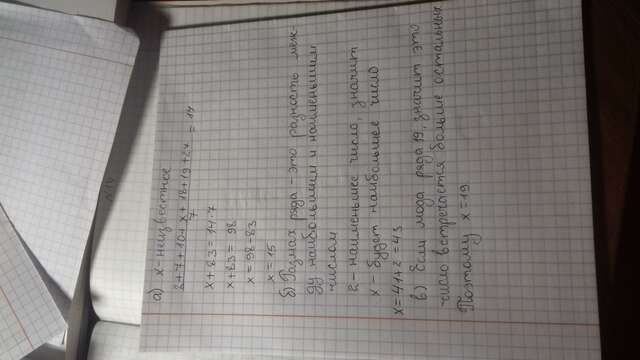 а) x - неизвестное
2+7+10+x+18+19+27 / 7 = 14
x+83=14·7
x+83= 98
x = 98-83
x = 15
б) Размах ряда - это разность меж-
ду наибольшим и наименьшим
числом
2 - наименьшее число, значит
x - будет наибольшее число
x=41+2=43
в) Если мода ряда 19, значит это
число встречается больше остальных
Поэтому x=19